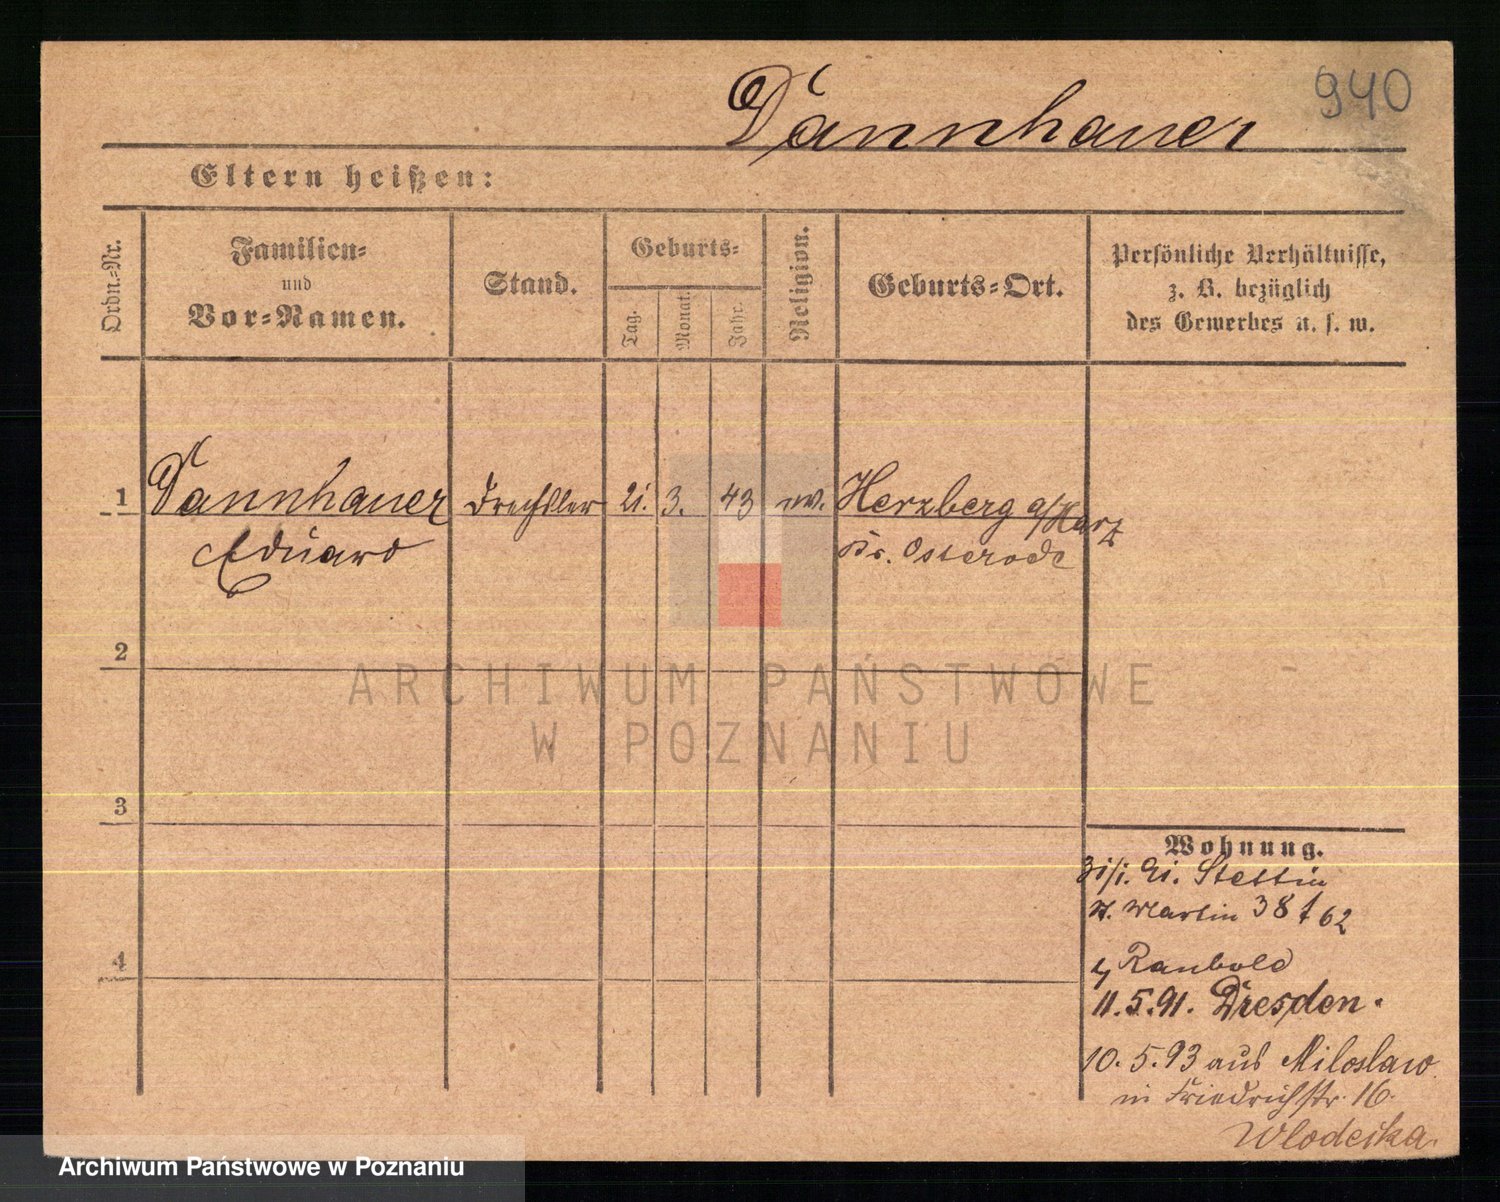 940
Dannhauer
Eltern heißen:
Ordn.-Nr.
Familien-
und
Vor-Namen.
Stand.
Geburts-
Tag.
Monat.
Jahr.
Religion.
Geburts-Ort.
Persönliche Verhältnisse,
z. B. bezüglich
des Gewerbes u. s. w.
1 Dannhauer Drechsler 21. 3. 43 ev. Herzberg a/Harz
Eduard Kr. Osterode
2
3
4
Wohnung.
31/1. 91. Stettin
St. Martin 38 62
Raubold
11.5.91. Dresden.
10.5.93 aus Miloslaw
in Friedrichstr. 16.
Wlodecka.
ARCHIWUM PAŃSTWOWE
W POZNANIU
Archiwum Państwowe w Poznaniu